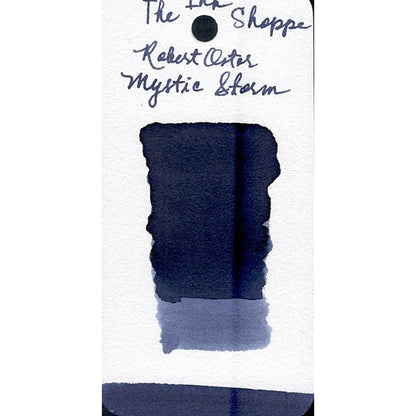 The Ink
Shoppe
Robert Oster
Mystic Storm